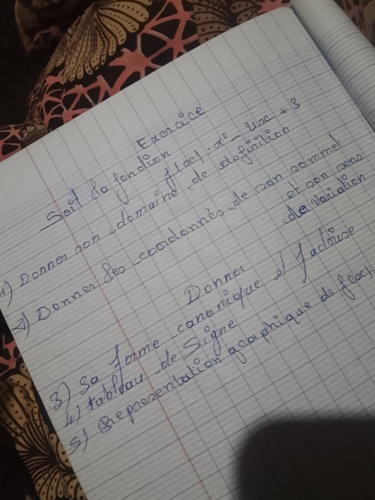 Exercice
Soit la fonction f(x) = x² - 4x + 3
1) Donner son domaine de definition
2) Donner les coordonnés de son sommet
et son sens
de variation
Donner
3) Sa forme canonique et factorise
4) tableau de Signe
5) Representation graphique de f(x)